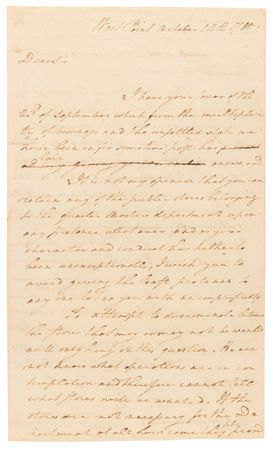 West Point October 14th 1780
Dear Sir
I have your favor of the
23d of September which from the multiplici
ty of business and the unsettled state we
have been in for some time past has
answered
It is not my opinion that you can
retain any of the public stores belonging
to the quarter Masters department upon
any pretence whatever, and as your
character and conduct has hitherto
been unexceptionable, I wish you to
avoid giving the least pretence to
any one to charge you with an impropriety
To attempt to discriminate between
the stores that may or may not be wanted
will only bring on the question. He can
not know what operations are in con
templation and therefore cannot tell
what stores will be wanted. If the
stores are not necessary for the De
partment at all, how came they to be provid